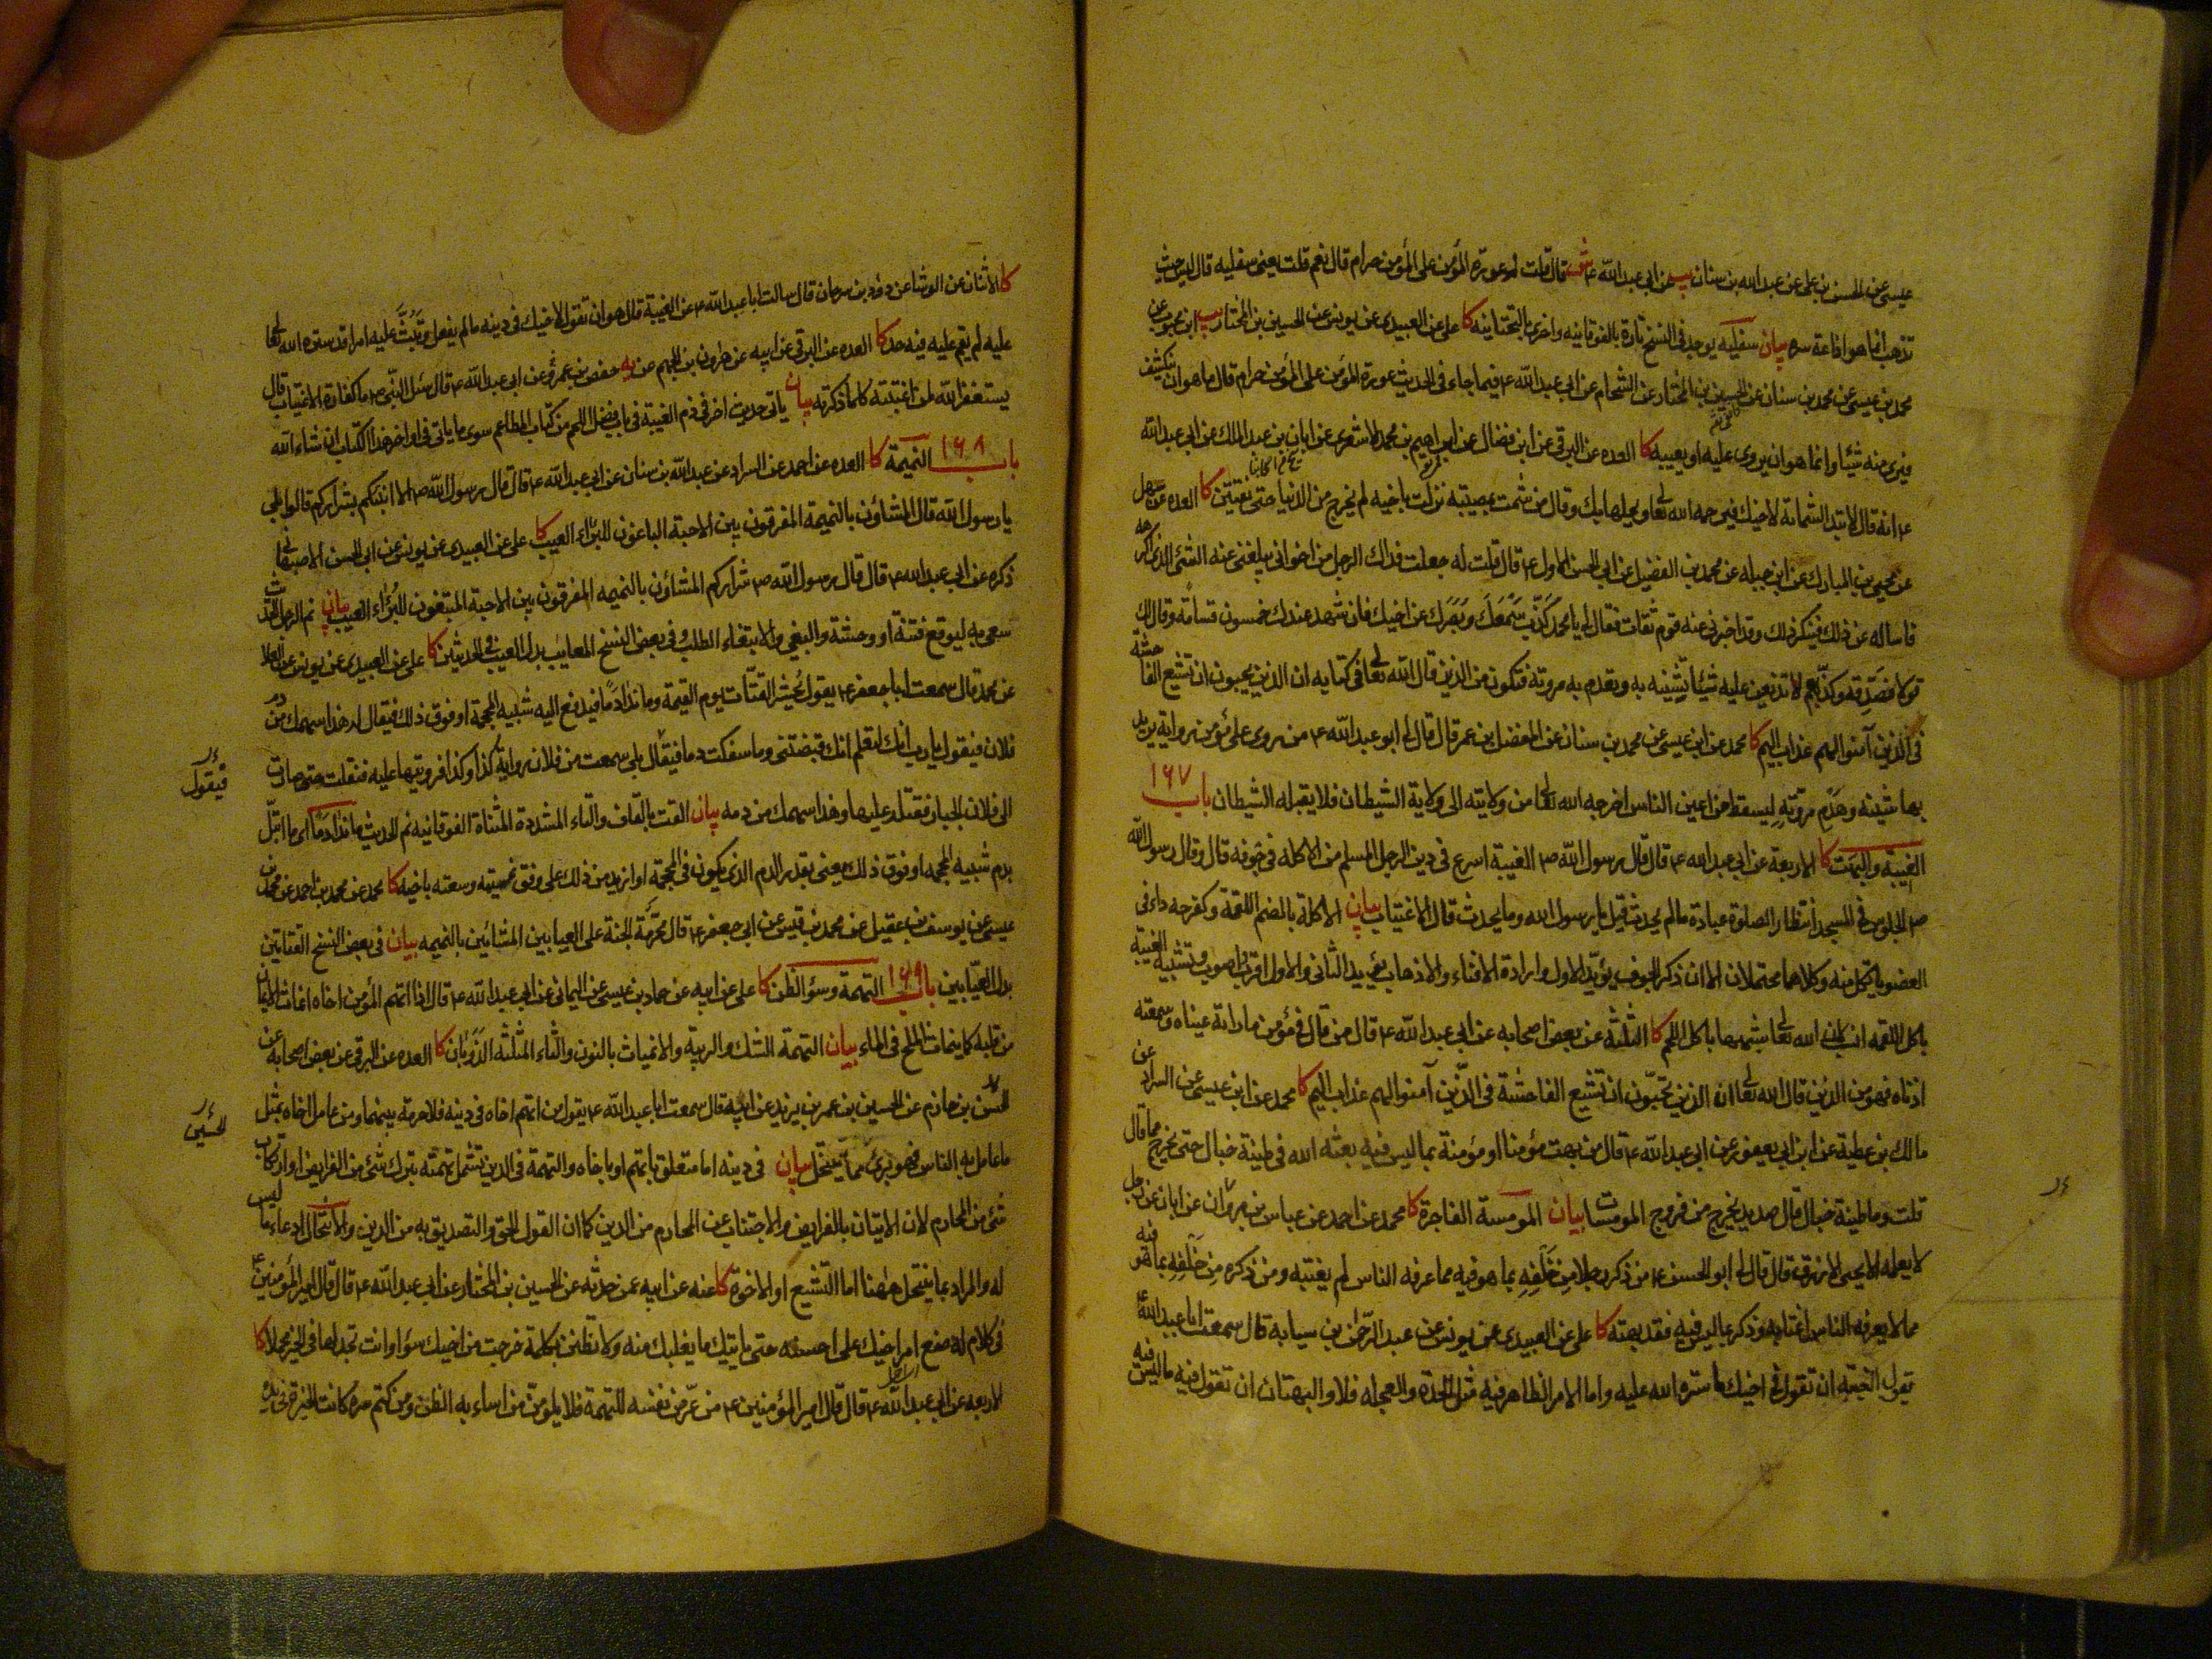 عيسى عن الحسن بن على عن عبد الله بن سنان يب عن ابى عبد الله ع قال قلت له عورة المؤمن على المؤمن حرام قال نعم قلت يعنى سفليه قال ليس حيث
تذهب انما هو اذاعة سره بيان سفليه يوجد فى النسخ تارة بالفوقانيه واخرى بالتحتانيه كا على عن العبيدى عن يونس عن الحسين بن المختار يب ابن محبوب عن
محمد بن عيسى عن محمد بن سنان عن الحسين بن المختار عن الشحام عن ابى عبد الله ع فيما جاء فى الحديث عورة المؤمن على المؤمن حرام قال ما هو ان ينكشف
فيرى منه شيئا وانما هو ان يروى عليه او يعيبه كا العده عن البرقى عن ابن فضال عن ابراهيم بن محمد الاشعرى عن ابان بن عبد الملك عن ابى عبد الله
ع انه قال لا تبد الشماتة لاخيك فيرحمه الله تعا ويحلها بك وقال من شمت بمصيبة نزلت باخيه لم يخرج من الدنيا حتى يفتتن كا العده عن سهل
عن يحيى بن المبارك عن ابن جبله عن محمد بن الفضيل عن ابى الحسن الاول ع قال قلت له جعلت فداك الرجل من اخوانى يبلغنى عنه الشئ الذى اكرهه
فاساله عن ذلك فينكر ذلك وقد اخبرنى عنه قوم ثقات فقال لى يا محمد كذب سمعك وبصرك عن اخيك فان شهد عندك خمسون قسامة وقال لك
قولا فصدقه وكذبهم لا تذيعن عليه شيئا تشينه به وتهدم به مروته فتكون من الذين قال الله تعا فى كتابه ان الذين يحبون ان تشيع الفاحشة
فى الذين آمنوا لهم عذاب اليم كا محمد عن ابن عيسى عن محمد بن سنان عن المفضل بن عمر قال قال لى ابو عبد الله ع من روى على مؤمن رواية يريد
بها شينه وهدم مروته ليسقط من اعين الناس اخرجه الله تعا من ولايته الى ولاية الشيطان فلا يقبله الشيطان باب ١٦٧
الغيبة والبهت كا الاربعة عن ابى عبد الله ع قال قال رسول الله ص الغيبة اسرع فى دين الرجل المسلم من الاكلة فى جوفه قال وقال رسول الله
ص الجلوس فى المسجد انتظار الصلوة عبادة ما لم يحدث قيل يا رسول الله وما يحدث قال الاغتياب بيان الاكلة بالضم اللقمة وكفرحه داء فى
العضو ياتكل منه وكلاهما محتملان الا ان ذكر الجوف يؤيد الاول وارادة الافناء والاذهاب يؤيد الثانى والاول اقرب واصوب وتشبيه الغيبة
باكل اللقمه انسب لان الله تعا شبهها باكل اللحم كا الثلثة عن بعض اصحابه عن ابى عبد الله ع قال من قال فى مؤمن ما راته عيناه وسمعته
اذناه فهو من الذين قال الله تعا ان الذين يحبون ان تشيع الفاحشة فى الذين آمنوا لهم عذاب اليم كا محمد عن ابن عيسى عن السراد عن
مالك بن عطية عن ابن ابى يعفور عن ابى عبد الله ع قال من بهت مؤمنا او مؤمنة بما ليس فيه بعثه الله فى طينة خبال حتى يخرج مما قال
قلت وما طينة خبال قال صديد يخرج من فروج المومسات بيان المومسة الفاجرة كا محمد عن احمد عن عباس بن مروان عن ابان عن رجل
لا يعلمه الا يحيى الازرق قال قال لى ابو الحسن ع من ذكر رجلا من خلفه بما هو فيه مما عرفه الناس لم يغتبه ومن ذكره من خلفه بما هو فيه
مما لا يعرفه الناس اغتابه ومن ذكر بما ليس فيه فقد بهته كا على عن العبيدى عن يونس عن عبد الرحمن بن سيابة قال سمعت ابا عبد الله ع
يقول الغيبة ان تقول فى اخيك ما ستره الله عليه واما الامر الظاهر فيه مثل الحدة والعجله فلا والبهتان ان تقول فيه ما ليس فيه
كا الاثنان عن الوشا عن داود بن سرحان قال سالت ابا عبد الله ع عن الغيبة قال هو ان تقول لاخيك فى دينه ما لم يفعل وتبث عليه امرا قد ستره الله تعا
عليه لم يقم عليه فيه حد كا العده عن البرقى عن ابيه عن هارون بن الجهم عن حفص بن عمر عن ابى عبد الله ع قال سئل النبى ص ما كفارة الاغتياب قال
يستغفر الله لمن اغتبته كلما ذكرته بيان ياتى حديث اخر فى ذم الغيبة فى باب فضل اللحم من كتاب المطاعم سوى ما ياتى فى اواخر هذا الكتاب ان شاء الله
باب ١٦٨ النميمة كا العده عن احمد عن السراد عن عبد الله بن سنان عن ابى عبد الله ع قال قال رسول الله ص الا انبئكم بشراركم قالوا بلى
يا رسول الله قال المشاؤن بالنميمة المفرقون بين الاحبة الباغون للبراء العيب كا على عن العبيدى عن يونس عن ابى الحسن الاصبهانى
ذكره عن ابى عبد الله ع قال قال رسول الله ص شراركم المشاؤن بالنميمه المفرقون بين الاحبة المبتغون للبرؤاء العيب بيان نم الرجل الحديث
سعى به ليوقع فتنة او وحشة والبغى والابتغاء الطلب وفى بعض النسخ المعايب بدل العيب فى الحديثين كا على عن العبيدى عن يونس عن العلا
عن محمد قال سمعت ابا جعفر ع يقول يحشر العبد يوم القيمة وما ندا دما فيدفع اليه شبيه المحجمة او فوق ذلك فيقال له هذا سهمك من دم
فلان فيقول يا رب انك لتعلم انك قبضتنى وما سفكت دما فيقال بلى سمعت من فلان رواية كذا وكذا فرويتها عليه فنقلت حتى صارت
فيقول
الى فلان الجبار فقتله عليها وهذا سهمك من دمه بيان القت بالقاف والتاء المشددة المثناة الفوقانيه نم الحديث ما ندا دما اى ما ابتل
بدم شبيه المحجمه او فوق ذلك يعنى بقدر الدم الذى يكون فى المحجمة او ازيد من ذلك على وفق نميمته وسعته باخيه كا محمد عن محمد بن احمد عن محمد بن
عيسى عن يوسف بن عقيل عن محمد بن قيس عن ابى جعفر ع قال محرمة الجنة على العيابين المشائين بالنميمه بيان فى بعض النسخ القتاتين
بدل العيابين باب ١٦٩ التهمة وسوء الظن كا على عن ابيه عن حماد بن عيسى عن اليمانى عن ابى عبد الله ع قال اذا اتهم المؤمن اخاه انماث الايمان
من قلبه كما ينماث الملح فى الماء بيان التهمة الشك والريبة والانمياث بالنون والثاء المثلثه الذوبان كا العده عن البرقى عن بعض اصحابه عن
الحسن بن حازم عن الحسين بن عمر بن يزيد عن ابيه قال سمعت ابا عبد الله ع يقول من اتهم اخاه فى دينه فلا حرمة بينهما ومن عامل اخاه بمثل
الحسين
ما عامل به الناس فهو برئ مما ينتحل بيان فى دينه اما متعلق باتهم او باخاه والتهمة فى الدين تشمل تهمته بترك شئ من الفرايض او ارتكاب
شئ من المحارم لان الاتيان بالفرايض والاجتناب عن المحارم من الدين كما ان القول الحق والتصديق به من الدين والانتحال ادعاء ما ليس
له والمراد بما ينتحل ههنا اما التشيع او الاخوة كا عنه عن ابيه عمن حدثه عن الحسين بن المختار عن ابى عبد الله ع قال قال امير المؤمنين ع
فى كلام له ضع امر اخيك على احسنه حتى ياتيك ما يغلبك منه ولا تظنن بكلمة خرجت من اخيك سوءا وانت تجد لها فى الخير محملا كا
الاربعه عن ابى عبد الله ع قال قال امير المؤمنين ع من عرض نفسه للتهمة فلا يلومن من اساء به الظن ومن كتم سره كانت الخيرة فى يده